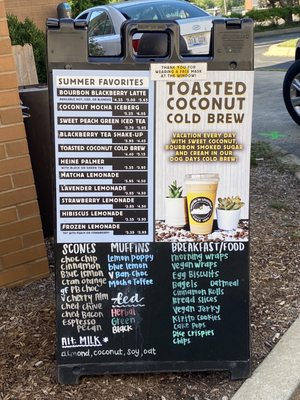 THANK YOU FOR
WEARING A FACE MASK
AT THE WINDOW!
SUMMER FAVORITES
BOURBON BLACKBERRY LATTE
AVAILABLE HOT, ICED, OR BLENDED
COCONUT MOCHA ICEBERG
SWEET PEACH GREEN ICED TEA
BLACKBERRY TEA SHAKE-UP
TOASTED COCONUT COLD BREW
HEINE PALMER
MATCHA LEMONADE
LAVENDER LEMONADE
STRAWBERRY LEMONADE
HIBISCUS LEMONADE
FROZEN LEMONADE
TOASTED
COCONUT
COLD BREW
VACATION EVERY DAY
WITH SWEET COCONUT
AND CREAM IN OUR
BOURBON SMOOTH
DOG DAYS COLD BREW
SCONES
choc chip
cinnamon
Blue lemon
cran orange
gf PB choc
v cherry Alm
ched chive
ched Bacon
Espresso
pecan
Alt. MILK*
almond, coconut, soy, oat
MUFFINS
Lemon Poppy
blue lemon
V Ban Choc
Mocha Toffee
Iced
Herbal
Green
Black
BREAKFAST/FOOD
morning wraps
vegan wraps
Egg Biscuits
Bagels Oatmeal
Cinnamon Rolls
Bread slices
Vegan Jerky
Kizito Cookies
Cake Pops
Rice Crispies
Chips